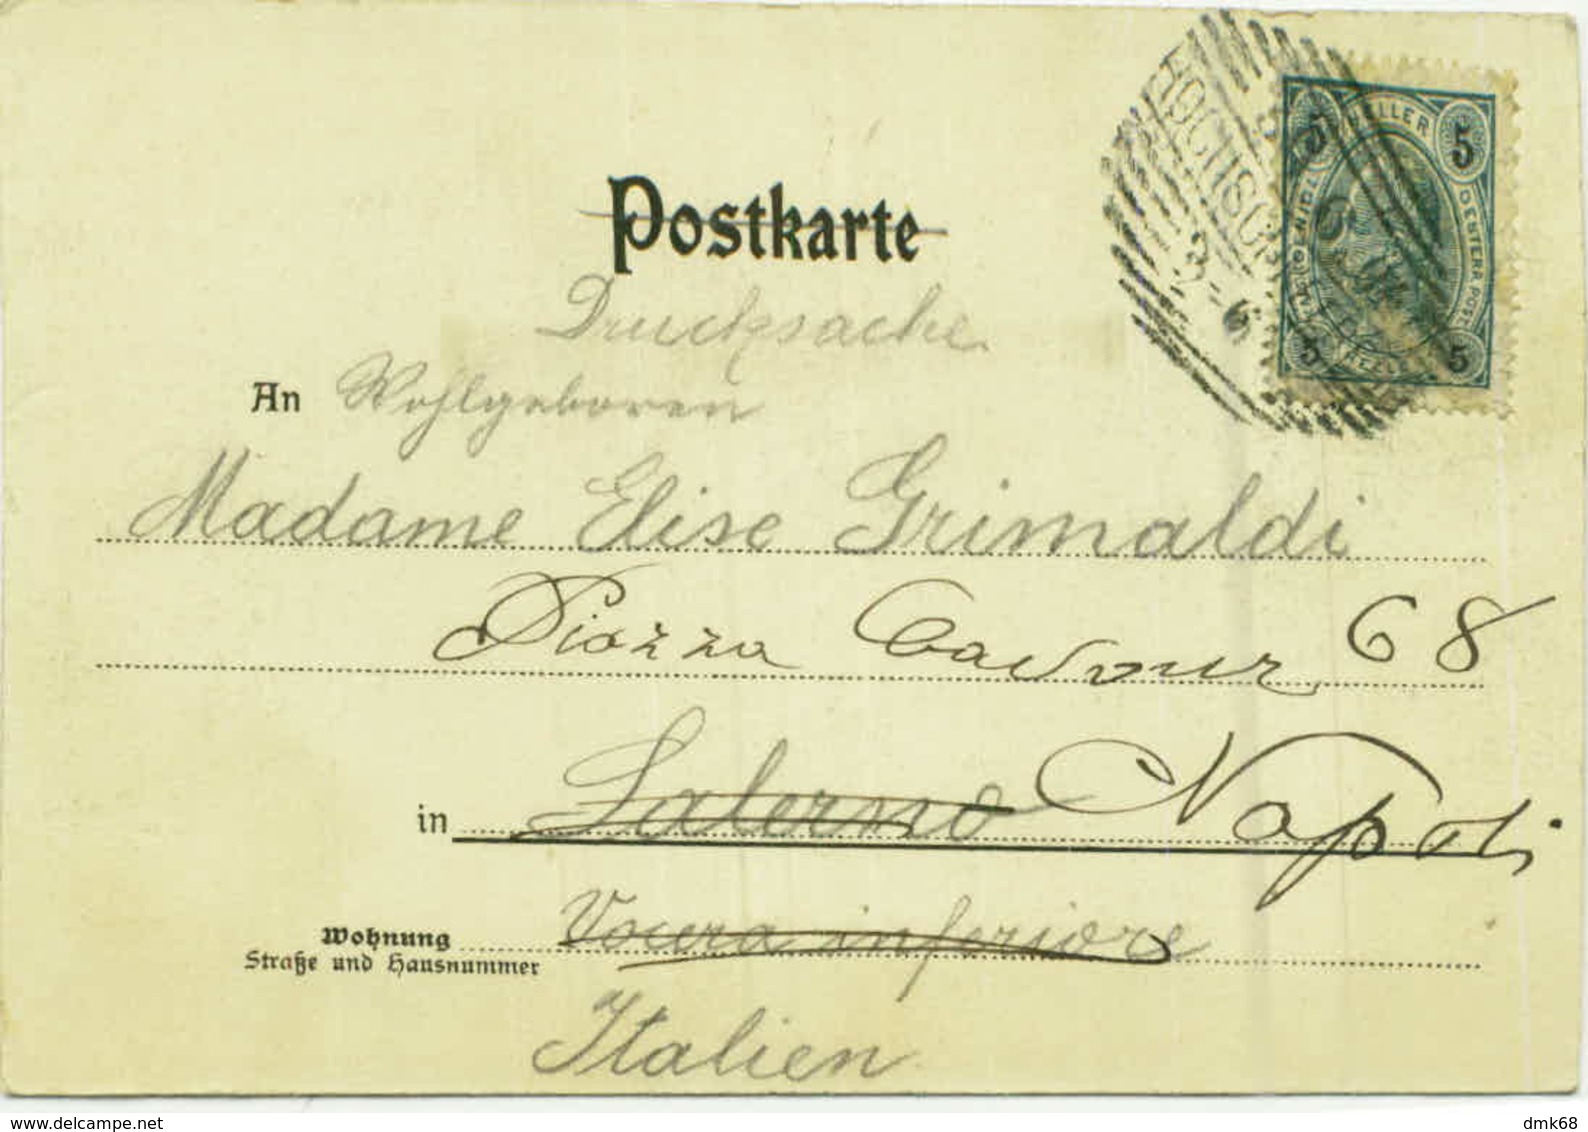 Postkarte
Drucksache
An Wohlgeboren
Madame Elise Grimaldi
Piazza Cavour 68
in Salerno Napoli
Wohnung
Straße und Hausnummer
inferiore
Italien
5 HELLER 5
5 5
www.delcampe.net
dmk68